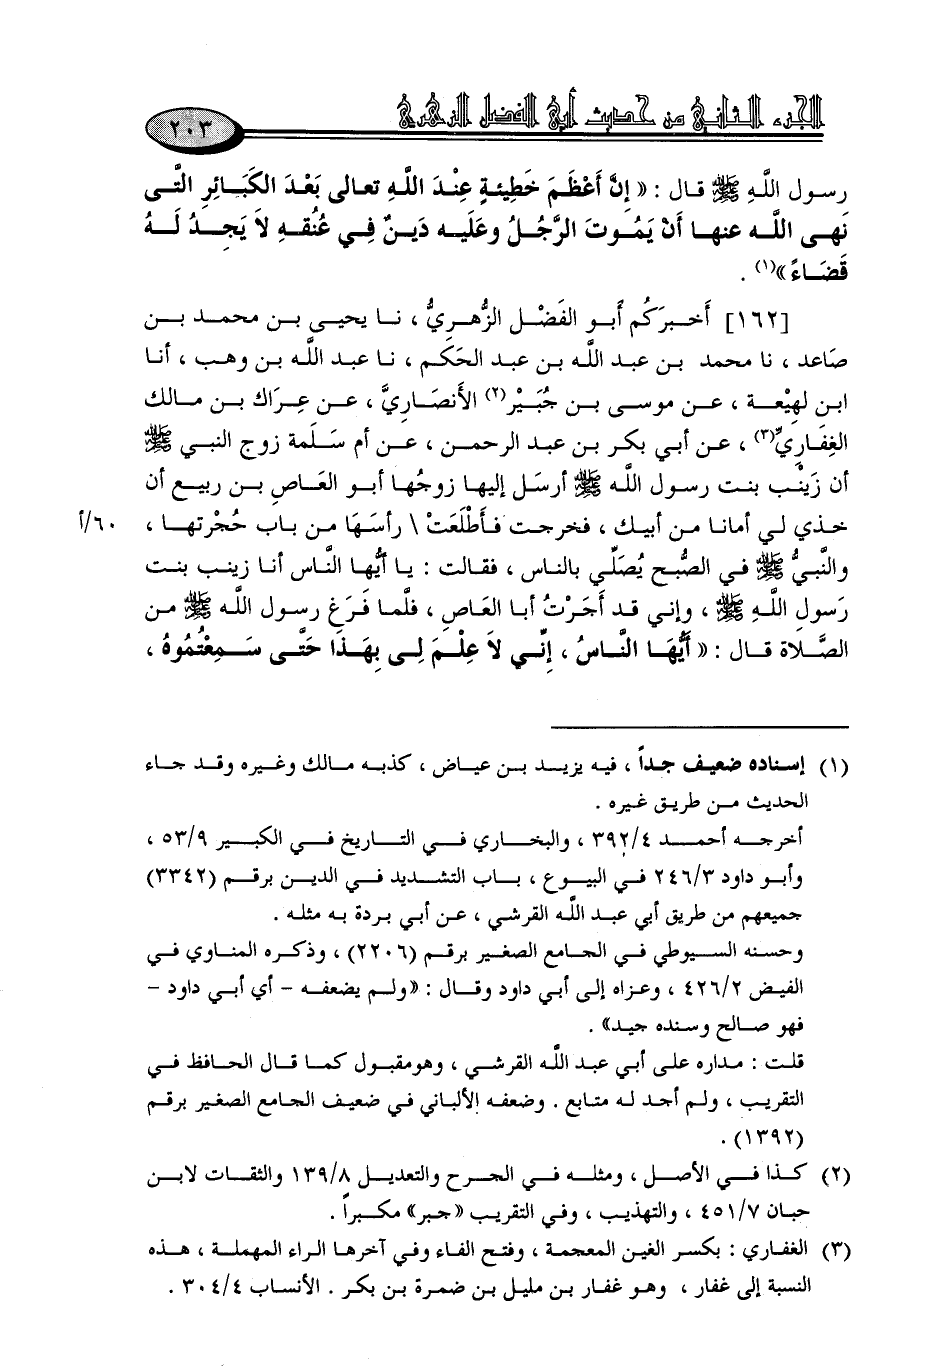 الجزء الثاني من حديث أبي الفضل الزهري
٢٠٣
رسول اللَّهِ ﷺ قال : « إنَّ أعْظَمَ خَطِيئةٍ عِنْدَ اللَّهِ تعالى بَعْدَ الكَبَائِرِ الَّتى
نَهى اللَّه عنها أنْ يَمُوتَ الرَّجُلُ وعَلَيه دَينٌ فِي عُنُقهِ لاَ يَجدُ لَهُ
قَضَاءً »(١) .
[١٦٢] أَخبرَكُم أبو الفَضْل الزُّهريُّ ، نا يحيى بن محمد بن
صَاعد ، نا محمد بن عبد اللَّه بن عبد الحَكَم ، نا عبد اللَّه بن وهب ، أنا
ابن لهيْعة ، عن موسى بن جُبَيْر(٢) الأنصَاريَّ ، عن عِرَاك بن مالك
الغِفَاريِّ(٣) ، عن أبي بكر بن عبد الرحمن ، عن أم سَلَمة زوج النبي ﷺ
أن زَيْنَب بنت رسول اللَّه ﷺ أرسَل إليها زوجُها أبو العَاص بن ربيع أن
خذي لي أمانا من أبيك ، فخرجت فأطْلَعَتْ \ رأسَهَا من باب حُجْرتها ،
٦٠/أ
والنَّبيُّ ﷺ في الصُّبح يُصَلّي بالناس ، فقالت : يا أيُّها النَّاس أنا زينب بنت
رَسول اللَّهِ ﷺ ، وإني قد أجَرْتُ أبا العَاص ، فلَّما فَرَغ رسول اللَّه ﷺ من
الصَّلاَة قال : « أيُّهَا النَّاسُ ، إنّي لاَ عِلْمَ لِى بِهَذَا حَتَّى سَمِعْتُمُوهُ ،
(١) إسناده ضعيف جداً ، فيه يزيد بن عياض ، كذبه مالك وغيره وقد جاء
الحديث من طريق غيره .
أخرجه أحمد ٣٩٢/٤ ، والبخاري في التاريخ في الكبير ٥٣/٩ ،
وأبو داود ٢٤٦/٣ في البيوع ، باب التشديد في الدين برقم (٣٣٤٢)
جميعهم من طريق أبي عبد اللَّه القرشي ، عن أبي بردة به مثله .
وحسنه السيوطي في الجامع الصغير برقم (٢٢٠٦) ، وذكره المناوي في
الفيض ٤٢٦/٢ ، وعزاه إلى أبي داود وقال : «ولم يضعفه – أي أبي داود –
فهو صالح وسنده جيد» .
قلت : مداره على أبي عبد اللَّه القرشي ، وهومقبول كما قال الحافظ في
التقريب ، ولم أجد له متابع . وضعفه الألباني في ضعيف الجامع الصغير برقم
(١٣٩٢) .
(٢) كذا في الأصل ، ومثله في الجرح والتعديل ١٣٩/٨ والثقات لابن
حبان ٤٥١/٧ ، والتهذيب ، وفي التقريب «جبر» مكبراً .
(٣) الغفاري : بكسر الغين المعجمة ، وفتح الفاء وفي آخرها الراء المهملة ، هذه
النسبة إلى غفار ، وهو غفار بن مليل بن ضمرة بن بكر . الأنساب ٣٠٤/٤ .